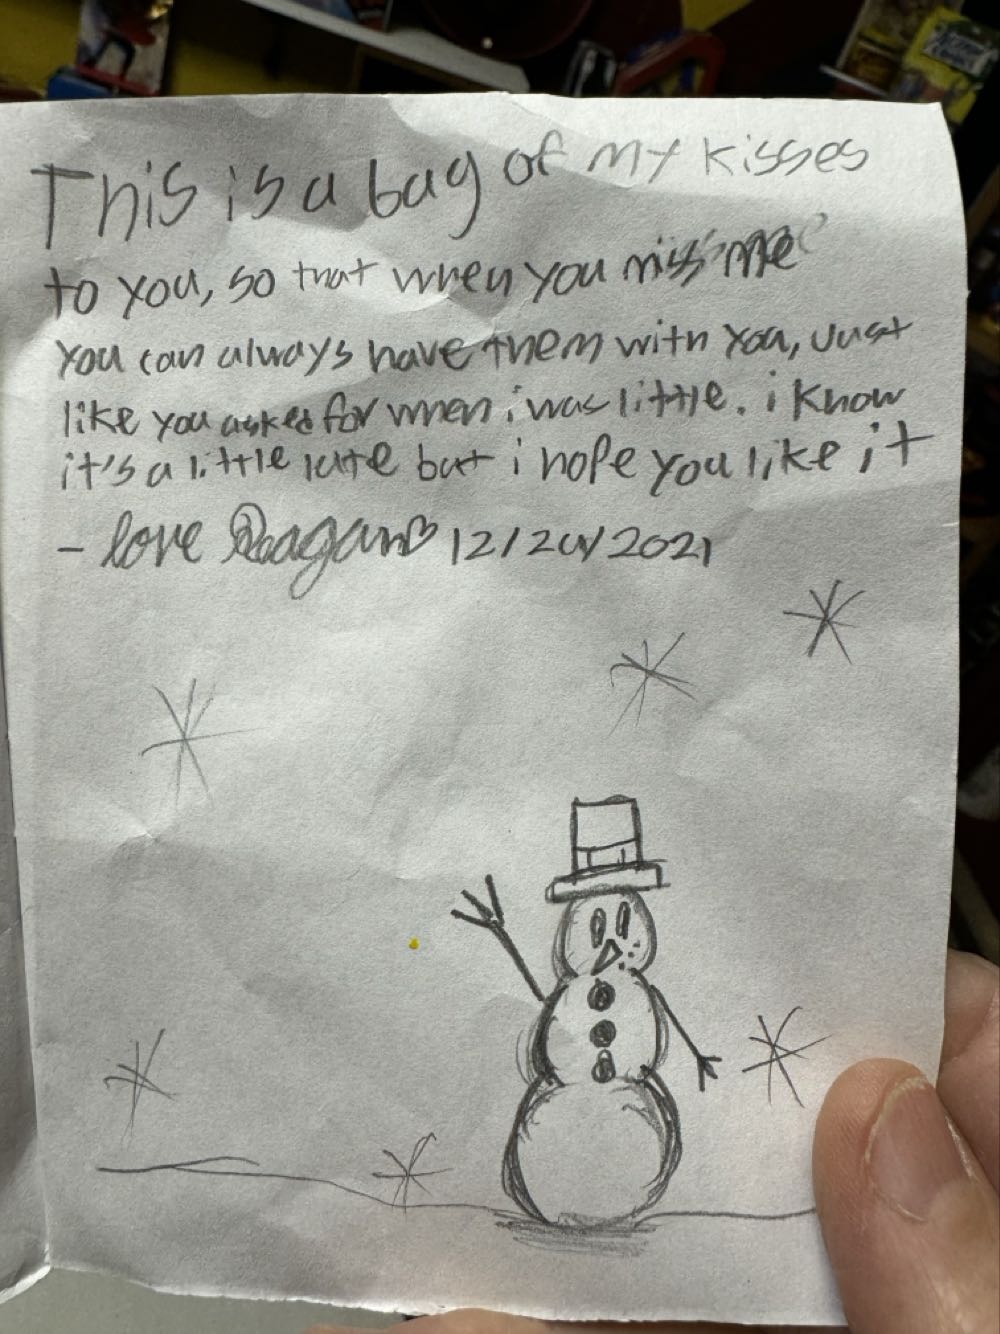 This is a bag of my kisses
to you, so that when you miss me
you can always have them with you, Just
like you asked for when i was little. i know
it's a little late but i hope you like it
- love Reagan♡ 12/20/2021